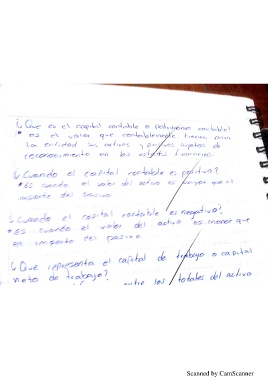 ¿Que es el capital contable o patrimonio contable?
• es el valor que contablemente tienen para
la entidad sus activos y pasivos sujetos de
reconocimiento en los estados financieros
¿Cuando el capital contable es positivo?
• es cuando el valor del activo es mayor que el
importe del pasivo
¿Cuando el capital contable es negativo?
• es cuando el valor del activo es menor que
es importe del pasivo
¿Que representa el capital de trabajo o capital
neto de trabajo?
entre los totales del activo
Scanned by CamScanner